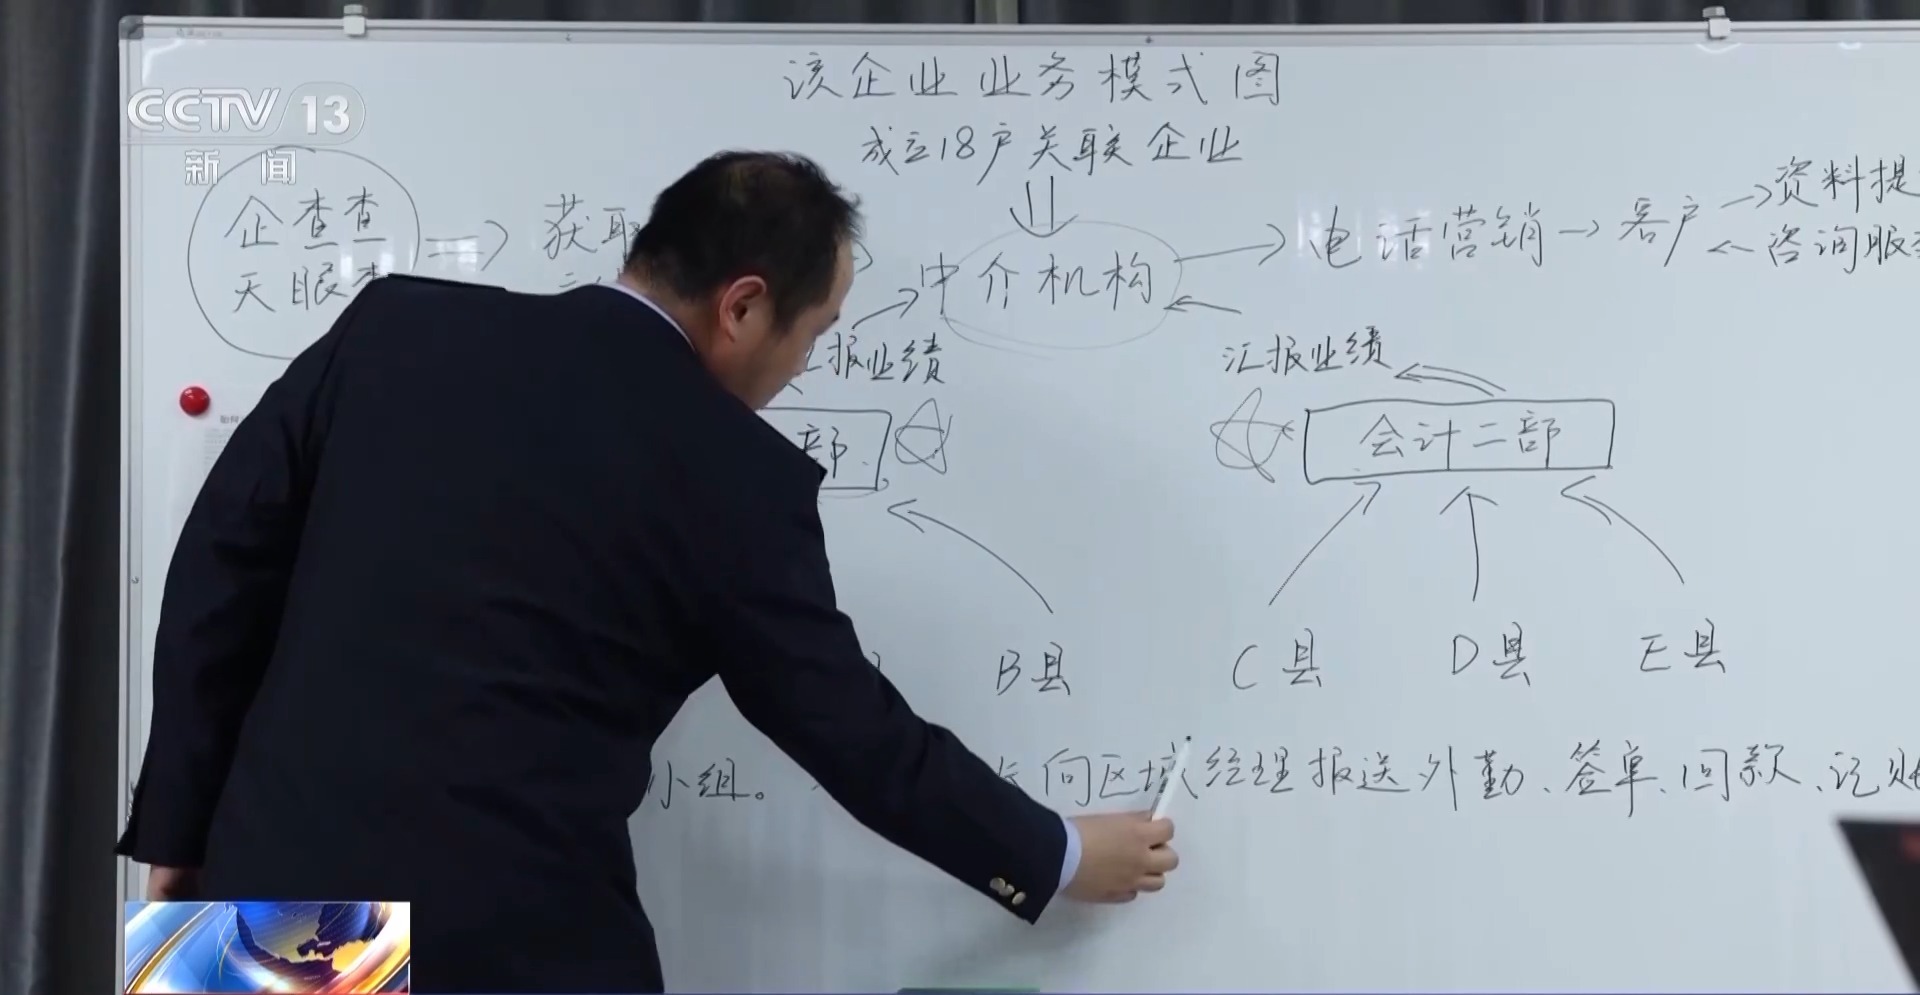 该企业业务模式图
CCTV 13
新闻
成立18户关联企业
企查查
天眼查
获取
中介机构
电话营销
客户
资料提
咨询服
报业绩
汇报业绩
部
会计二部
B县
C县
D县
E县
小组。
向区域经理报送外勤、签单、回款、记账